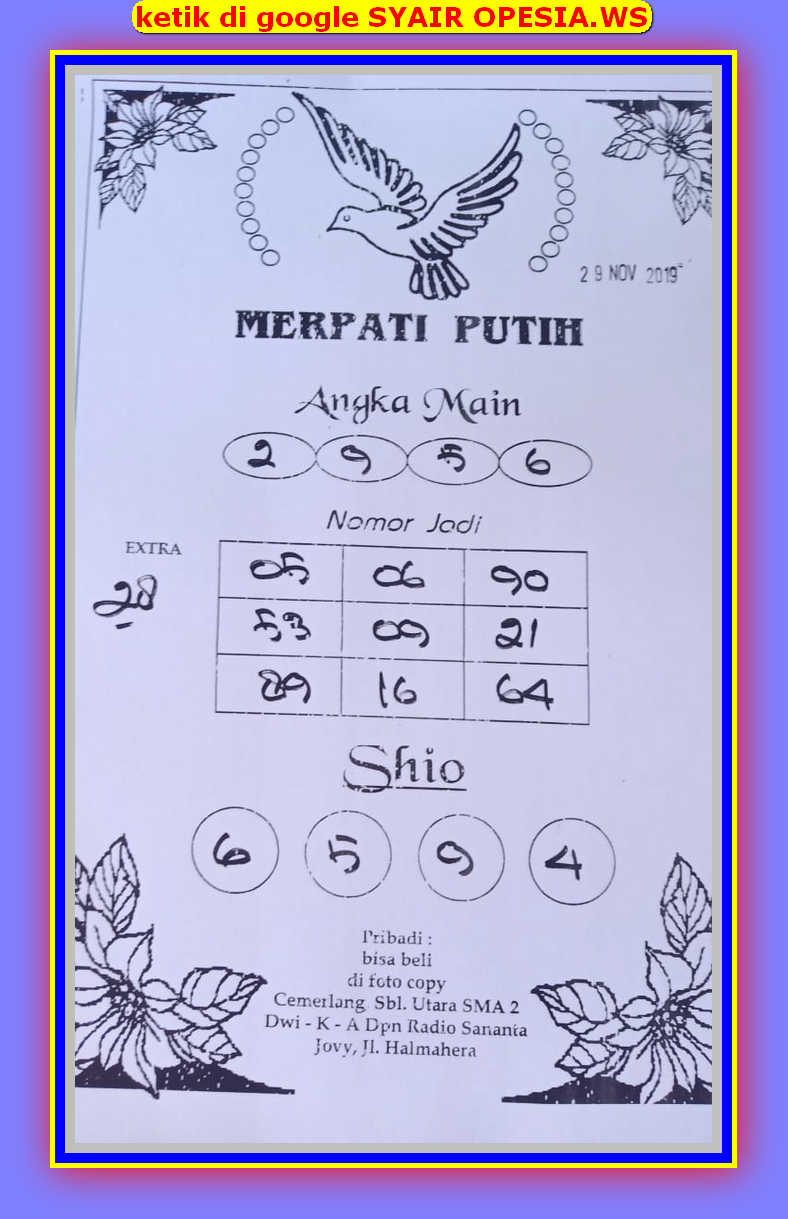 ketik di google SYAIR OPESIA.WS
29 NOV 2019
MERPATI PUTIH
Angka Main
2 9 5 6
Nomor Jadi
EXTRA
28
05 06 90
53 09 21
89 16 64
Shio
6 5 9 4
Pribadi :
bisa beli
di foto copy
Cemerlang Sbl. Utara SMA 2
Dwi - K - A Dpn Radio Sanania
Jovy, Jl. Halmahera